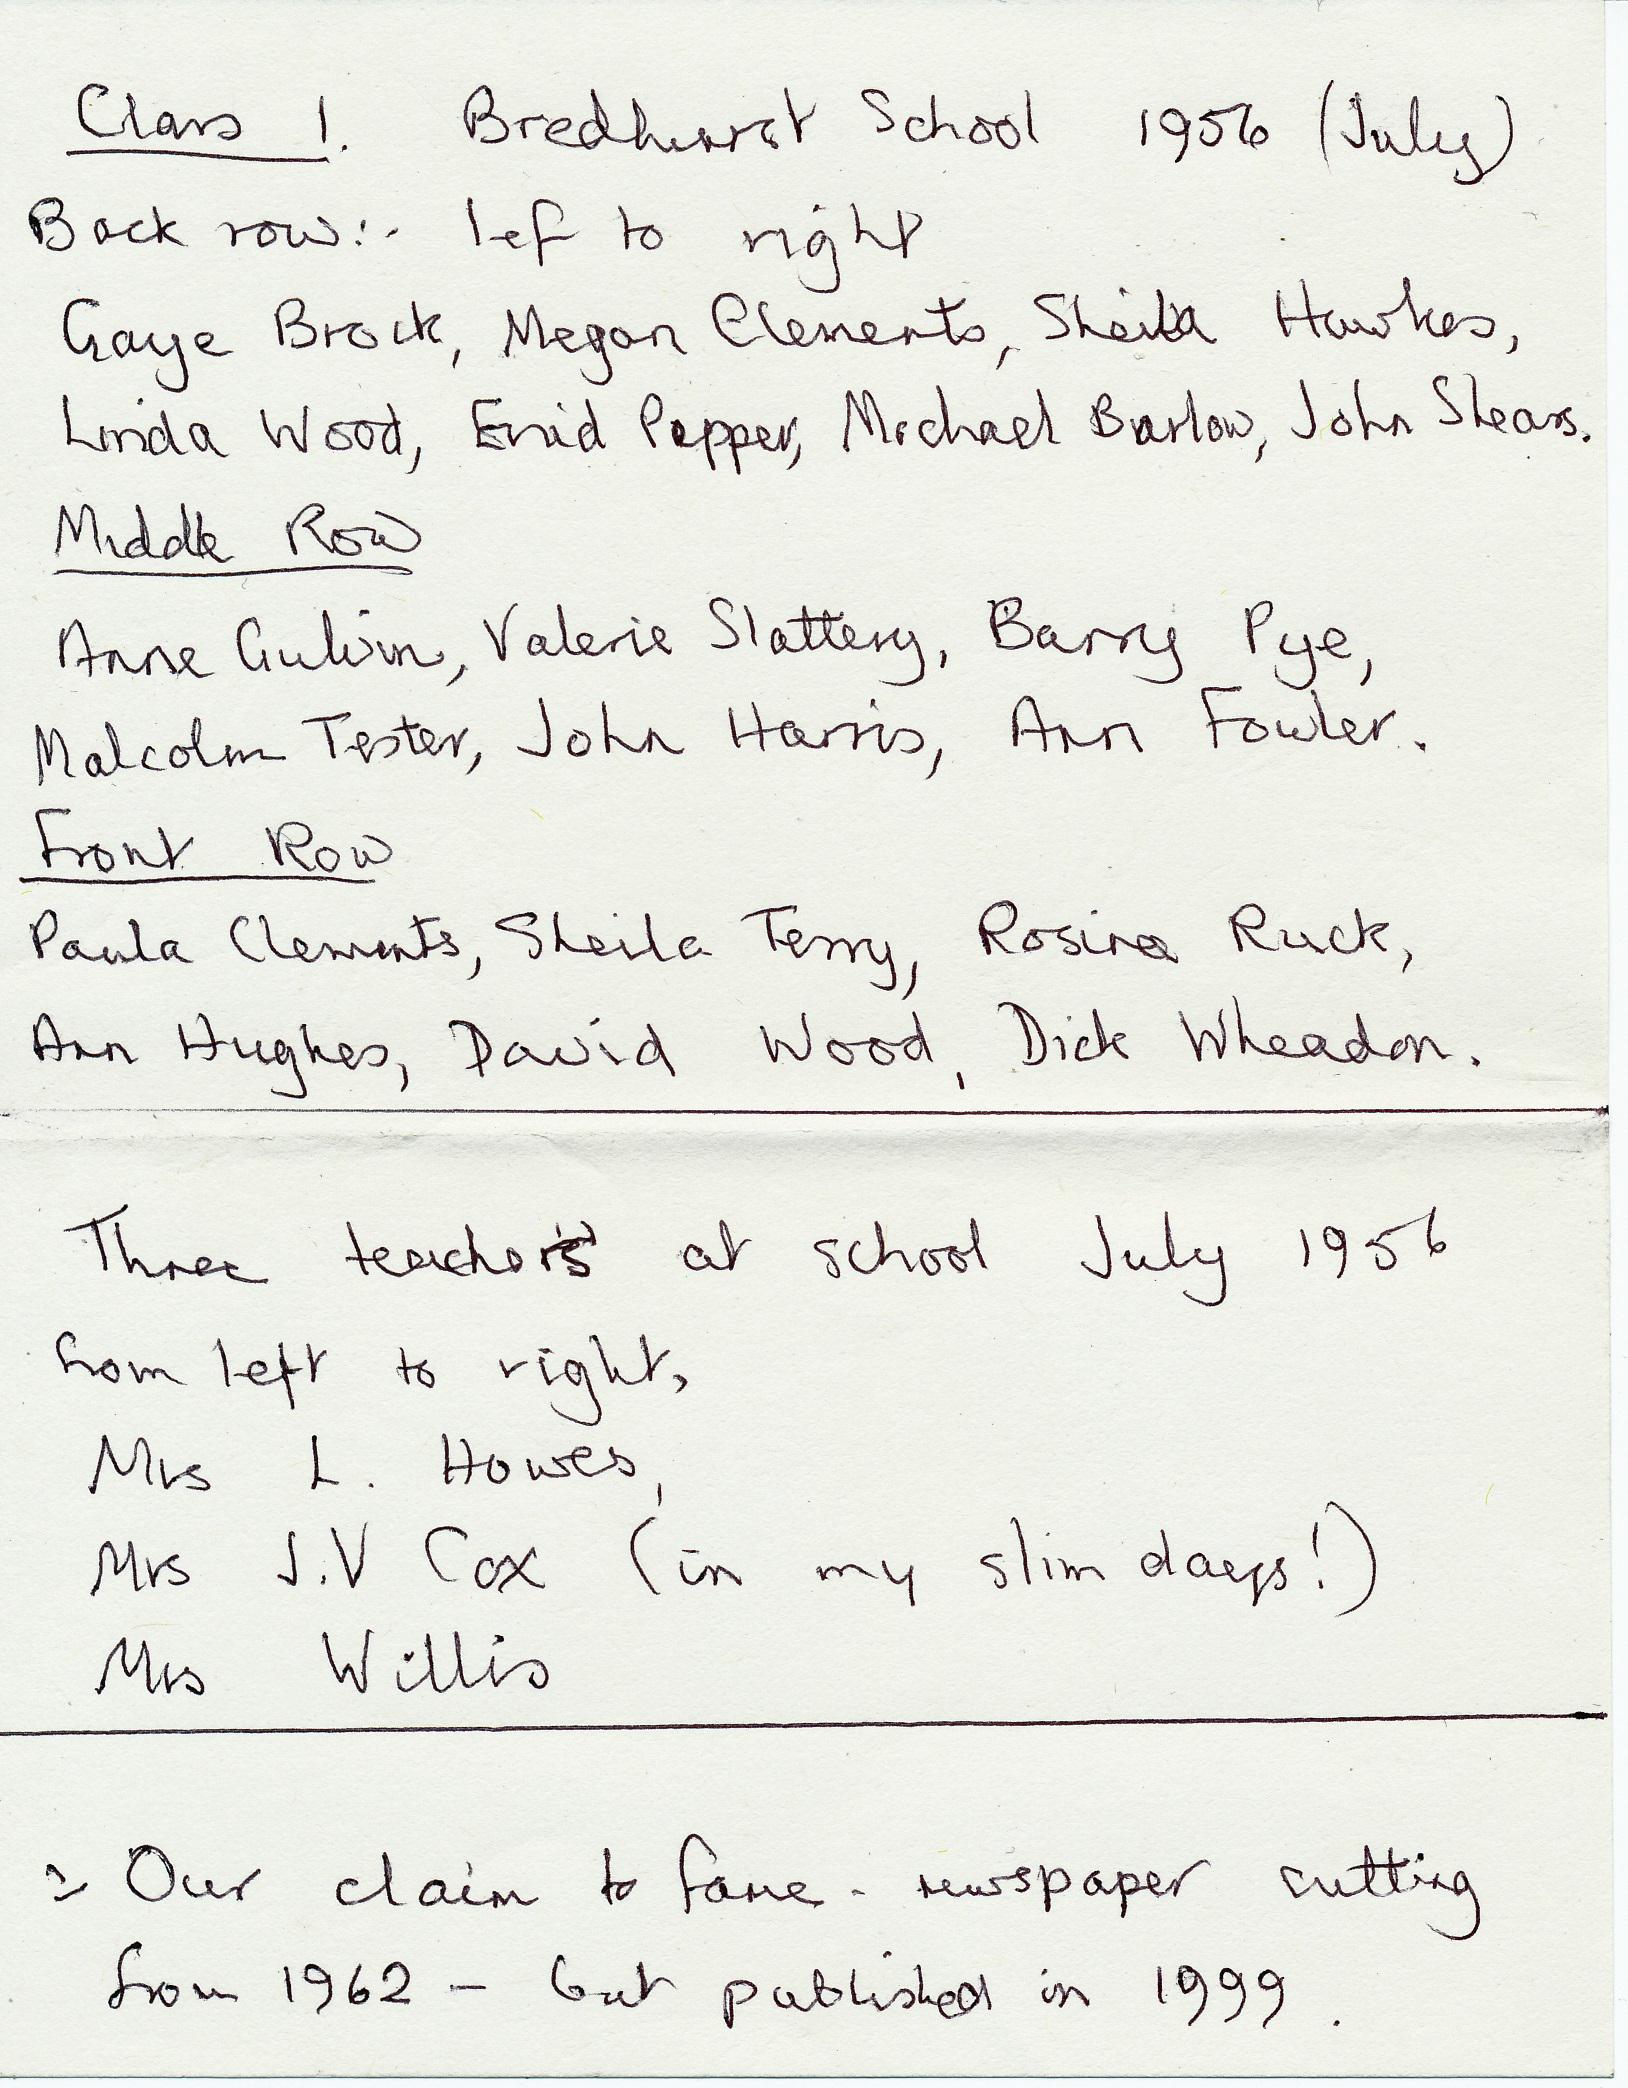 Class 1. Bredhurst School 1956 (July)
Back row:- lef to right
Gaye Brock, Megan Clements, Sheila Hawkes,
Linda Wood, Enid Pepper, Michael Barlow, John Shears.
Middle Row
Anne Gulvin, Valerie Slattery, Barry Pye,
Malcolm Tester, John Harris, Ann Fowler.
Front Row
Paula Clements, Sheila Terry, Rosina Ruck,
Ann Hughes, David Wood, Dick Wheadon.
Three teachers at school July 1956
from left to right,
Mrs L. Howes,
Mrs J.V Cox (in my slim days!)
Mrs Willis
Our claim to fame - newspaper cutting
from 1962 - but published in 1999.